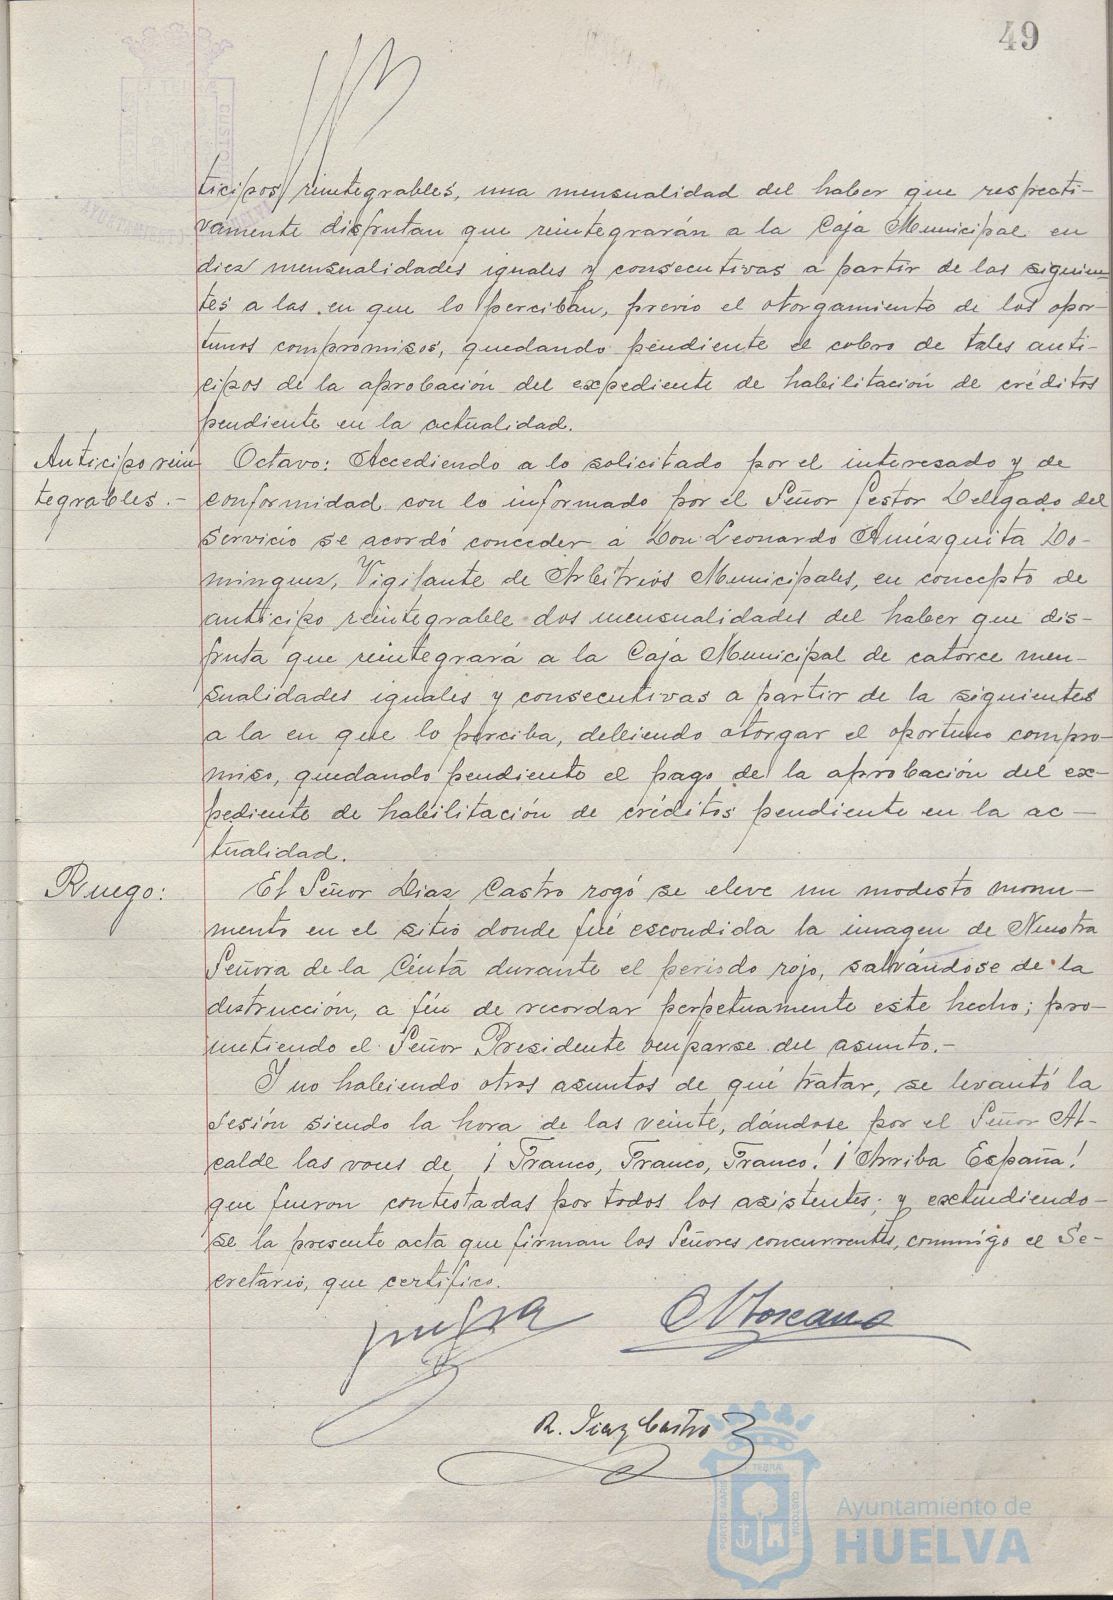 49
ticipos reintegrables, una mensualidad del haber que respecti-
vamente disfrutan que reintegrarán a la Caja Municipal en
diez mensualidades iguales y consecutivas a partir de las siguien-
tes a las en que lo perciban, previo el otorgamiento de los opor-
tunos compromisos, quedando pendiente el cobro de tales anti-
cipos de la aprobación del expediente de habilitación de créditos
pendiente en la actualidad.
Anticipo rein
tegrables.-
Octavo: Accediendo a lo solicitado por el interesado y de
conformidad con lo informado por el Señor Gestor Delegado del
Servicio se acordó conceder a Don Leonardo Amézquita Do-
minguez, Vigilante de Arbitrios Municipales, en concepto de
anticipo reintegrable dos mensualidades del haber que dis-
fruta que reintegrará a la Caja Municipal de catorce men-
sualidades iguales y consecutivas a partir de la siguientes
a la en que lo perciba, debiendo otorgar el oportuno compro-
miso, quedando pendiente el pago de la aprobación del ex-
pediente de habilitación de créditos pendiente en la ac-
tualidad.
Ruego:
El Señor Diaz Castro rogó se eleve un modesto monu-
mento en el sitio donde fué escondida la imagen de Nuestra
Señora de la Cinta durante el periodo rojo, salvándose de la
destrucción, a fin de recordar perpetuamente este hecho; pro-
metiendo el Señor Presidente ocuparse del asunto.-
Y no habiendo otros asuntos de qué tratar, se levantó la
sesión siendo la hora de las veinte, dándose por el Señor Al-
calde las voces de ¡Franco, Franco, Franco! ¡Arriba España!
que fueron contestadas por todos los asistentes; y extendiendo-
se la presente acta que firman los Señores concurrentes, conmigo el Se-
cretario, que certifico.
R. Diaz Castro
Ayuntamiento de
HUELVA